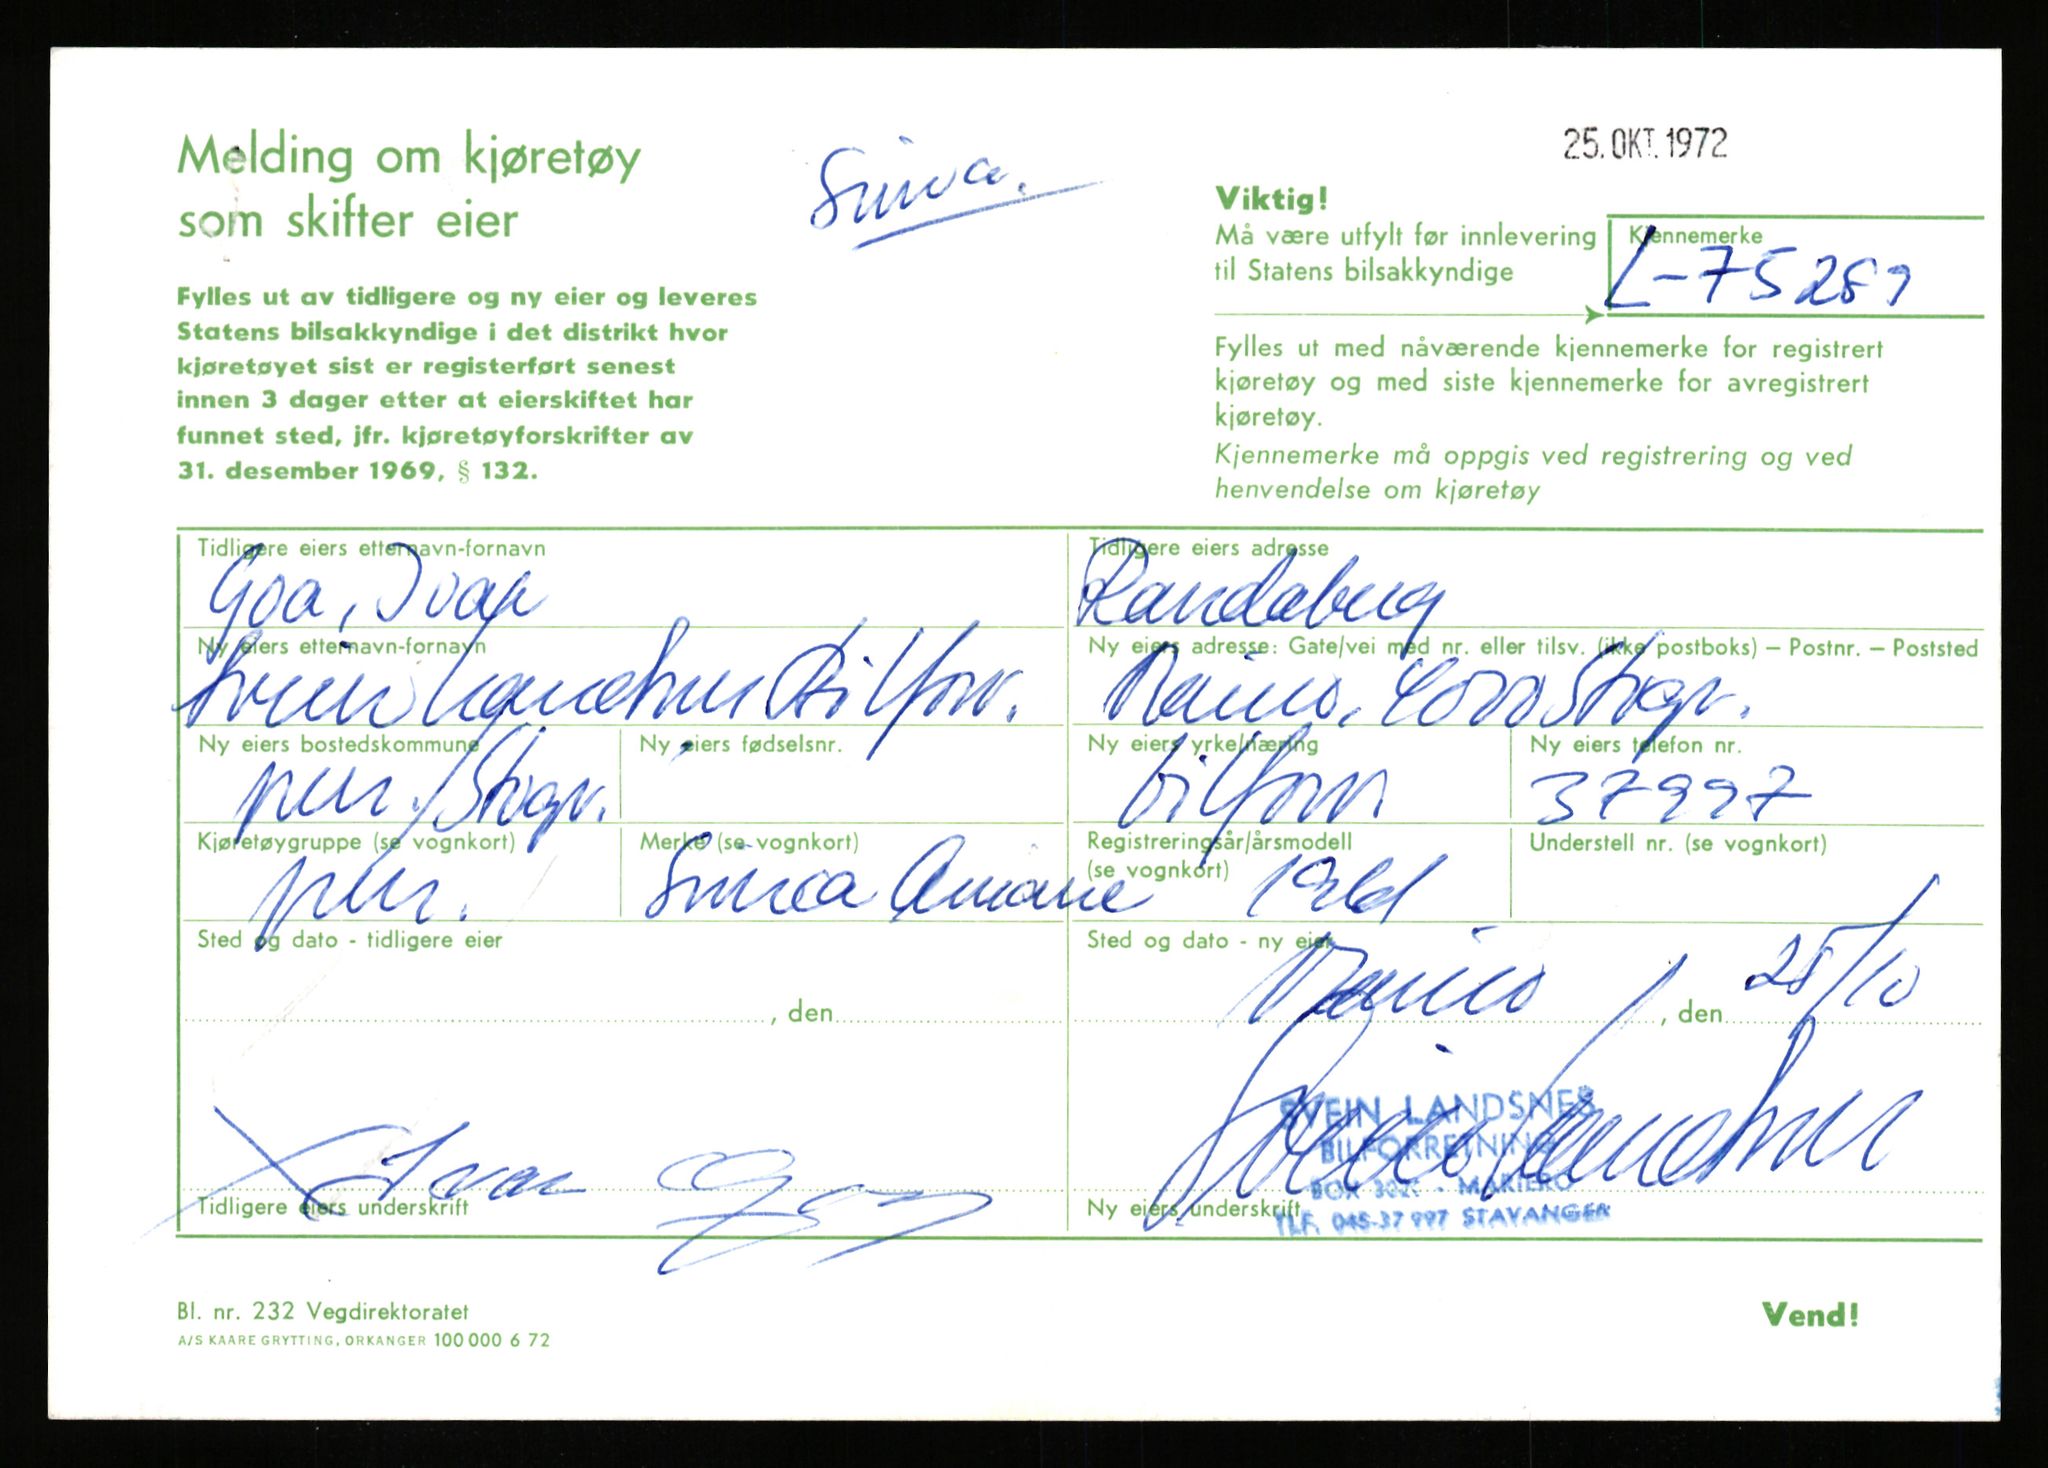 25. OKT. 1972
Melding om kjøretøy
som skifter eier
Simca.
Viktig!
Må være utfylt før innlevering
til Statens bilsakkyndige
Kjennemerke
L-75289
Fylles ut av tidligere og ny eier og leveres
Statens bilsakkyndige i det distrikt hvor
kjøretøyet sist er registerført senest
innen 3 dager etter at eierskiftet har
funnet sted, jfr. kjøretøyforskrifter av
31. desember 1969, § 132.
Fylles ut med nåværende kjennemerke for registrert
kjøretøy og med siste kjennemerke for avregistrert
kjøretøy.
Kjennemerke må oppgis ved registrering og ved
henvendelse om kjøretøy
Tidligere eiers etternavn-fornavn
Goa, Ivar
Tidligere eiers adresse
Randaberg
Ny eiers etternavn-fornavn
Svein Landsnes Bilforr.
Ny eiers adresse: Gate/vei med nr. eller tilsv. (ikke postboks) – Postnr. – Poststed
4000 Stvgr.
Ny eiers bostedskommune
pers. / Stvgr.
Ny eiers fødselsnr.
Ny eiers yrke/næring
bilforr.
Ny eiers telefon nr.
37997
Kjøretøygruppe (se vognkort)
pers.
Merke (se vognkort)
Simca Ariane
Registreringsår/årsmodell
(se vognkort)
1961
Understell nr. (se vognkort)
Sted og dato - tidligere eier
, den
Sted og dato - ny eier
, den 25/10
Ivar Goa
Tidligere eiers underskrift
Svein Landsnes
SVEIN LANDSNES
BILFORRETNING
BOX 3021 - MARIERO
TLF. 045-37 997 STAVANGER
Ny eiers underskrift
Bl. nr. 232 Vegdirektoratet
A/S KAARE GRYTTING, ORKANGER 100 000 6 72
Vend!